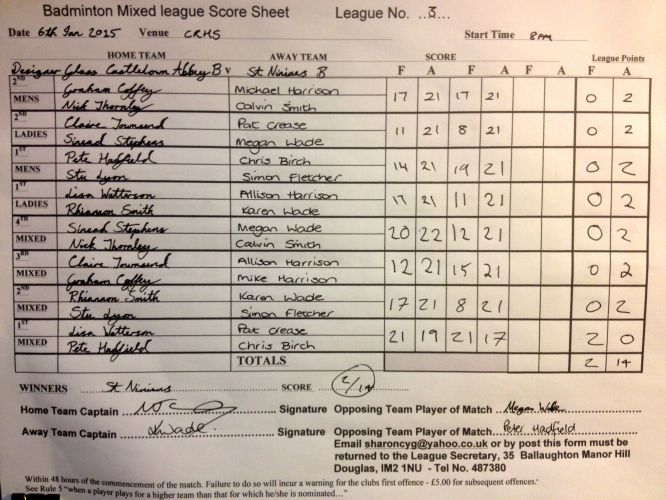 Badminton Mixed league Score Sheet League No. ..3...
Date 6th Jan 2015 Venue CRHS Start Time 8pm
HOME TEAM AWAY TEAM SCORE League Points
Designer Glass Castletown Abbey B v St Ninians B F A F A F A F A
2ND MENS Graham Coffey Michael Harrison 17 21 17 21 0 2
Nick Thornley Calvin Smith
2ND LADIES Claire Townsend Pat Crease 11 21 8 21 0 2
Sinead Stephens Megan Wade
1ST MENS Pete Hadfield Chris Birch 14 21 19 21 0 2
Stu Lyon Simon Fletcher
1ST LADIES Lisa Watterson Allison Harrison 17 21 11 21 0 2
Rhiannon Smith Karen Wade
4TH MIXED Sinead Stephens Megan Wade 20 22 12 21 0 2
Nick Thornley Calvin Smith
3RD MIXED Claire Townsend Allison Harrison 12 21 15 21 0 2
Graham Coffey Mike Harrison
2ND MIXED Rhiannon Smith Karen Wade 17 21 8 21 0 2
Stu Lyon Simon Fletcher
1ST MIXED Lisa Watterson Pat Crease 21 19 21 17 2 0
Pete Hadfield Chris Birch
TOTALS 2 14
WINNERS St Ninians SCORE 2/14
Home Team Captain Signature Opposing Team Player of Match Megan Wade
Away Team Captain KWade Signature Opposing Team Player of Match Peter Hadfield
Email sharoncyg@yahoo.co.uk or by post this form must be
returned to the League Secretary, 35 Ballaughton Manor Hill
Douglas, IM2 1NU - Tel No. 487380
Within 48 hours of the commencement of the match. Failure to do so will incur a warning for the clubs first offence - £5.00 for subsequent offences.'
See Rule 5 "when a player plays for a higher team than that for which he/she is nominated..."